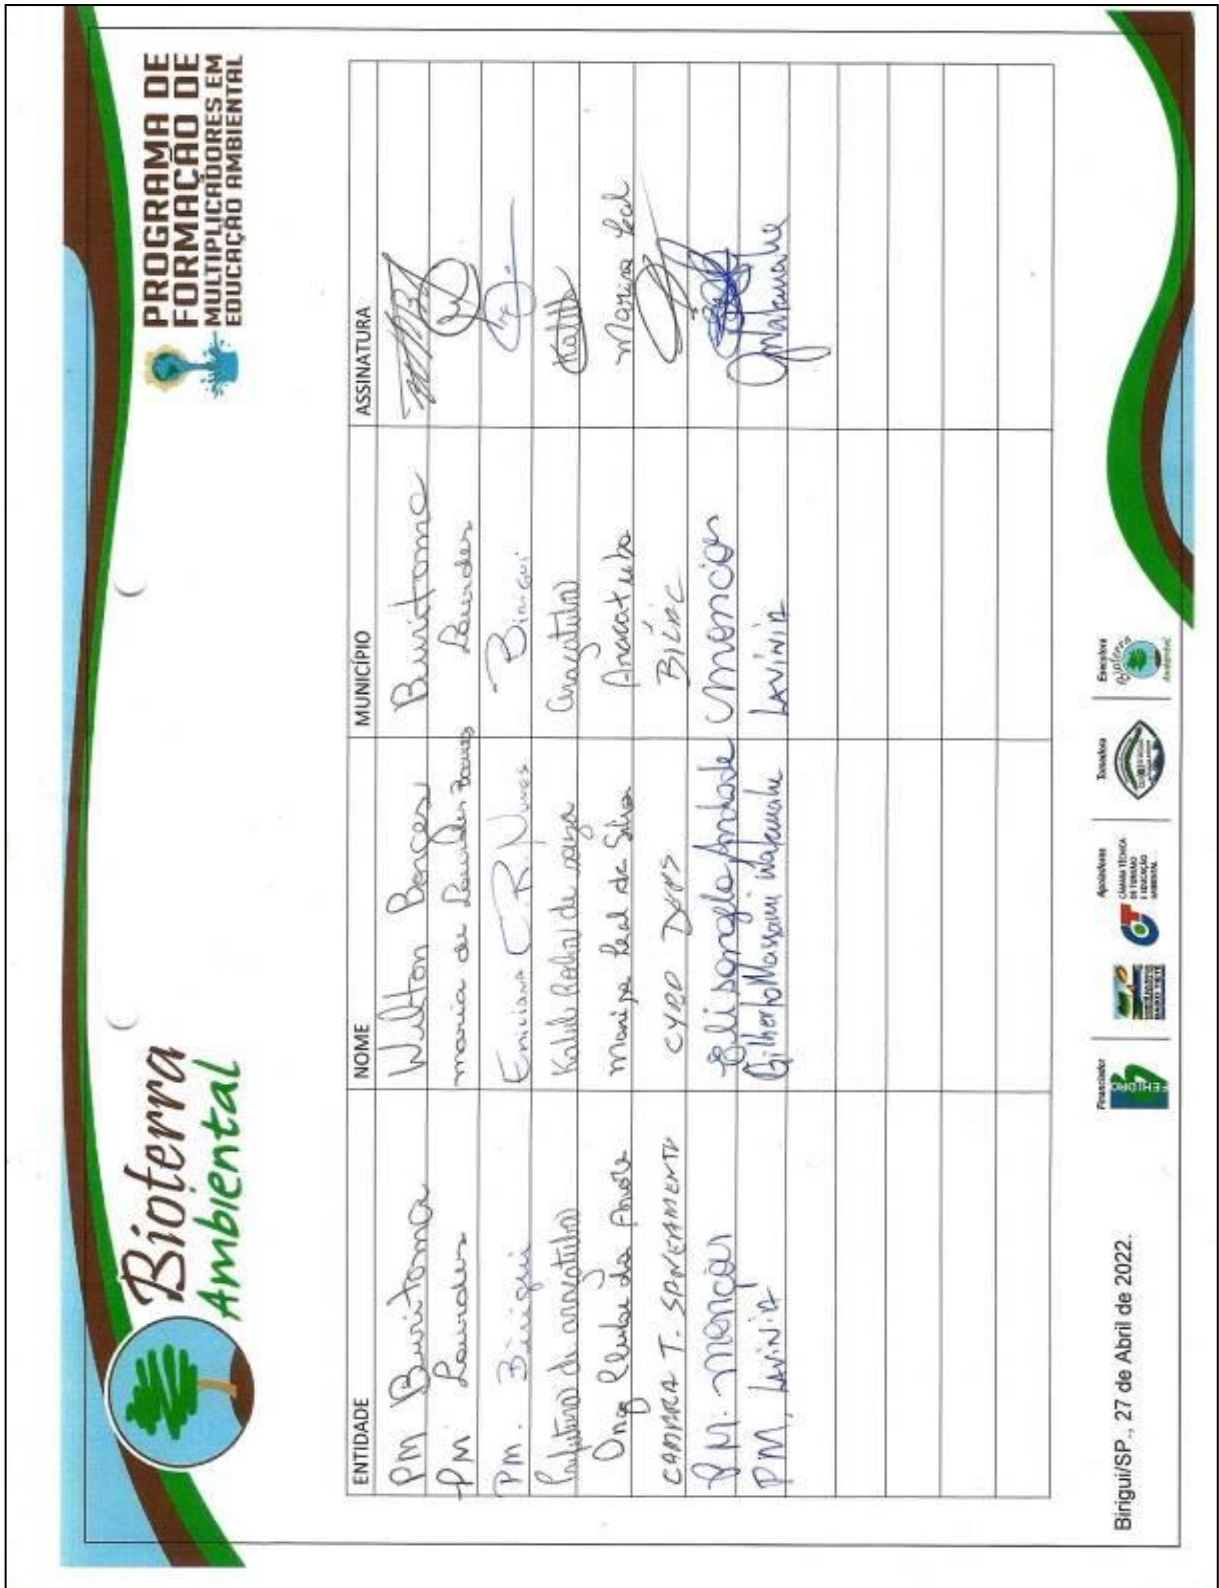 Bioterra
Ambiental
PROGRAMA DE
FORMAÇÃO DE
MULTIPLICADORES EM
EDUCAÇÃO AMBIENTAL
ENTIDADE NOME MUNICÍPIO ASSINATURA
PM Buritama Wilton Borges Buritama
PM Lourdes maria de Lourdes Lourdes
PM. Birigui C.R. Nunes Birigui
Prefeitura de araçatuba de souza araçatuba
Ong Clube da Leal da Silva Aracatuba Leal
CAMARA T. SANEAMENTO CYRO DIAS BILAC
P.M. Andrade
PM, LAVINIA Gilberto Massami Watanabe LAVINIA
Birigui/SP., 27 de Abril de 2022.
Financiador
FEHIDRO
Apoiadores
CÂMARA TÉCNICA
DE TURISMO
E EDUCAÇÃO
AMBIENTAL
Tomadora
Executora
Bioterra
Ambiental